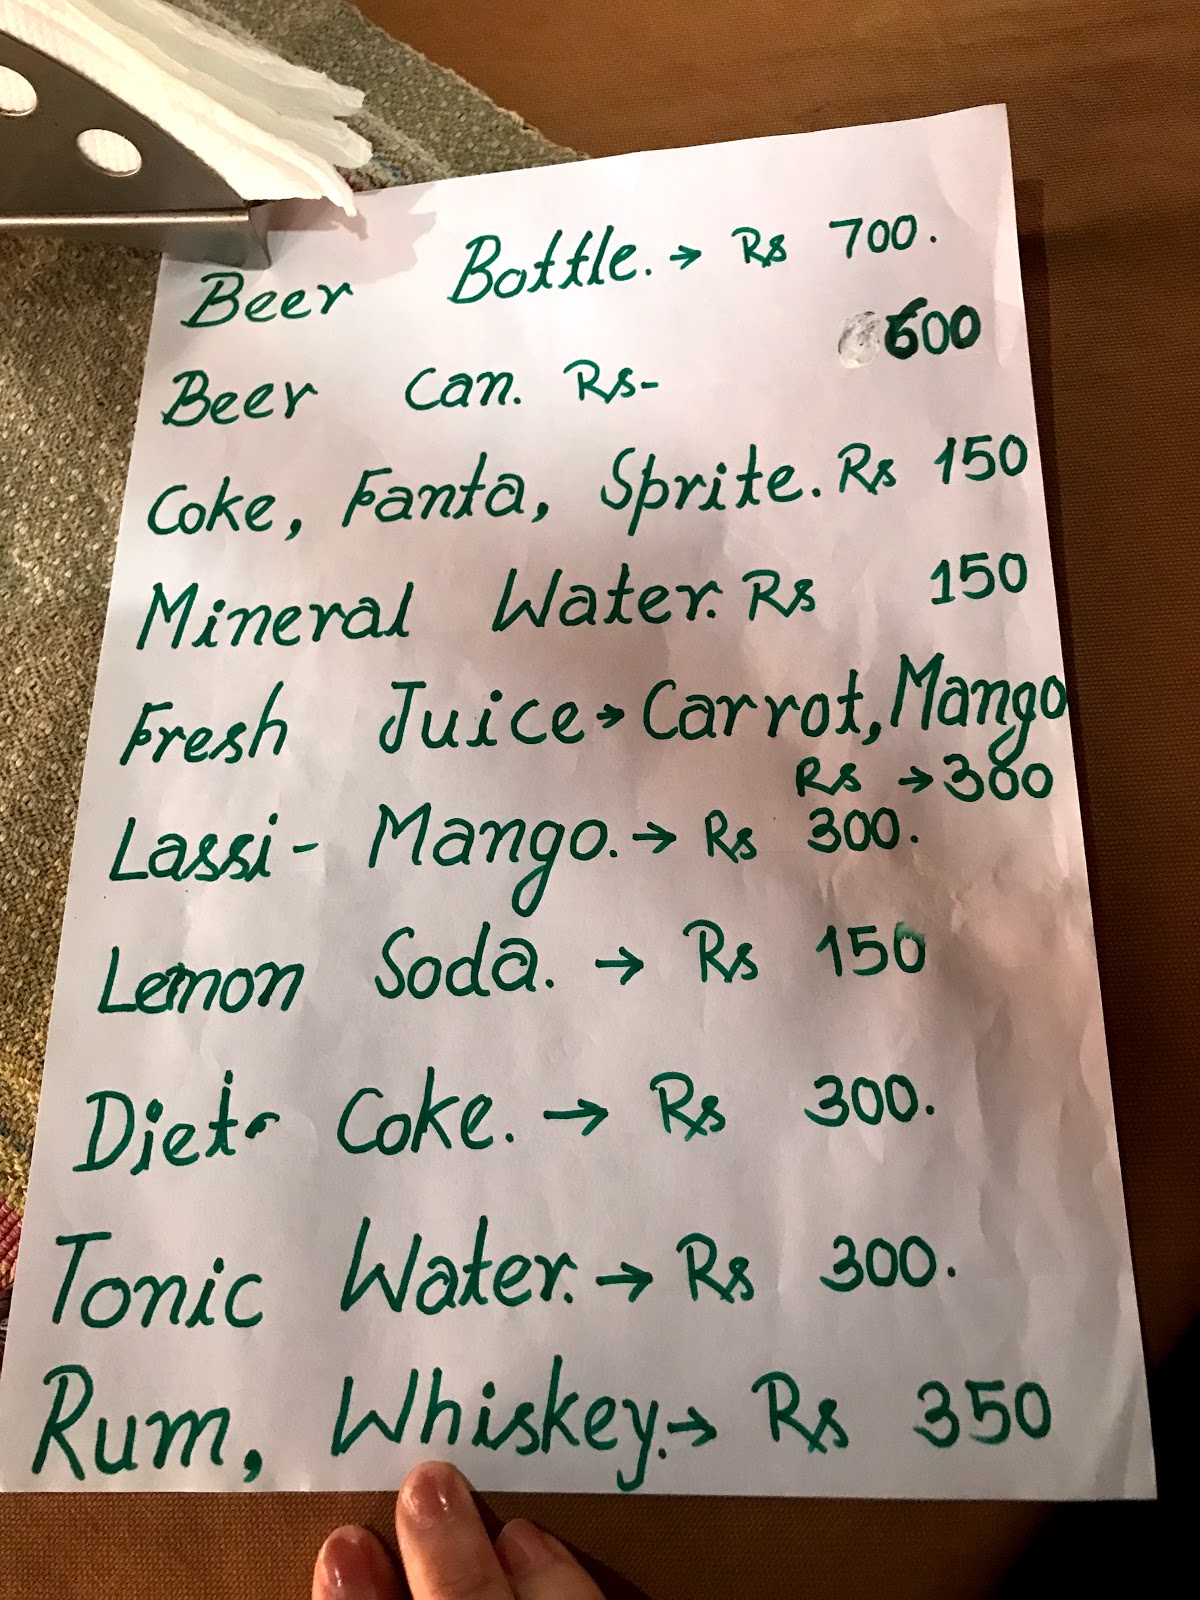 Beer Bottle. → Rs 700.
Beer Can. Rs- 600
Coke, Fanta, Sprite. Rs 150
Mineral Water. Rs 150
Fresh Juice → Carrot, Mango
Rs → 300
Lassi - Mango. → Rs 300.
Lemon Soda. → Rs 150
Diet- Coke. → Rs 300.
Tonic Water. → Rs 300.
Rum, Whiskey. → Rs 350